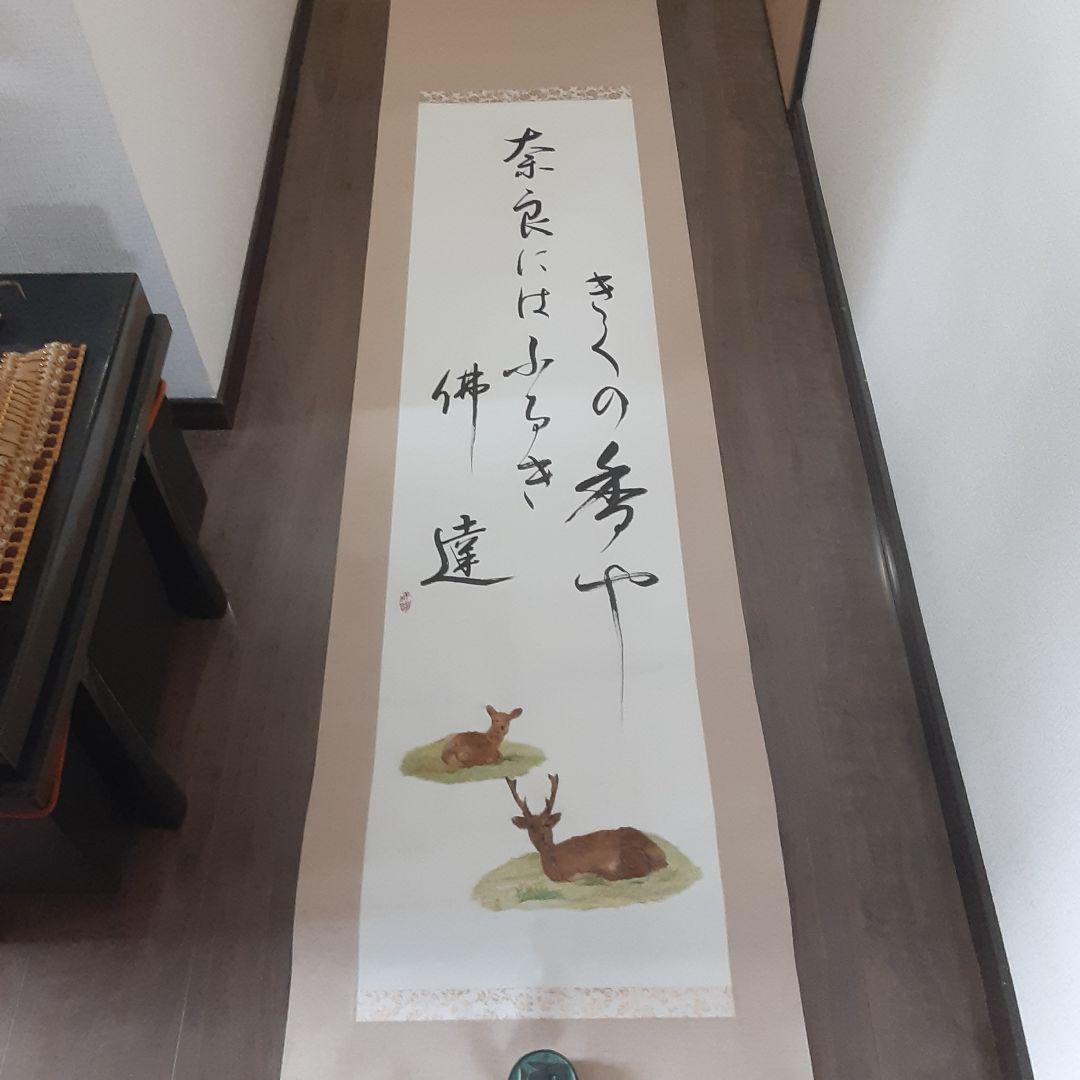 きくの香や
奈良にはふるき
佛
達